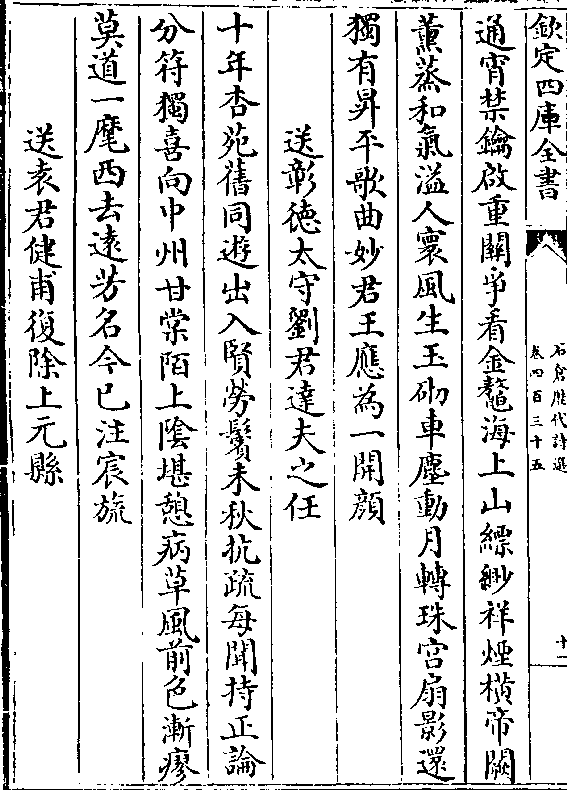 欽定四庫全書
石倉歷代詩選
卷四百三十五
十一
通宵禁鑰啟重關爭看金鼇海上山縹緲祥煙橫帝闕
薰蒸和氣溢人寰風生玉砌車塵動月轉珠宮扇影還
獨有昇平歌曲妙君王應為一開顔
送彰德太守劉君達夫之任
十年杏苑舊同遊出入賢勞鬢未秋抗疏每聞持正論
分符獨喜向中州甘棠陌上隂堪憩病草風前色漸瘳
莫道一麾西去逺芳名今已注宸旒
送袁君健甫復除上元縣